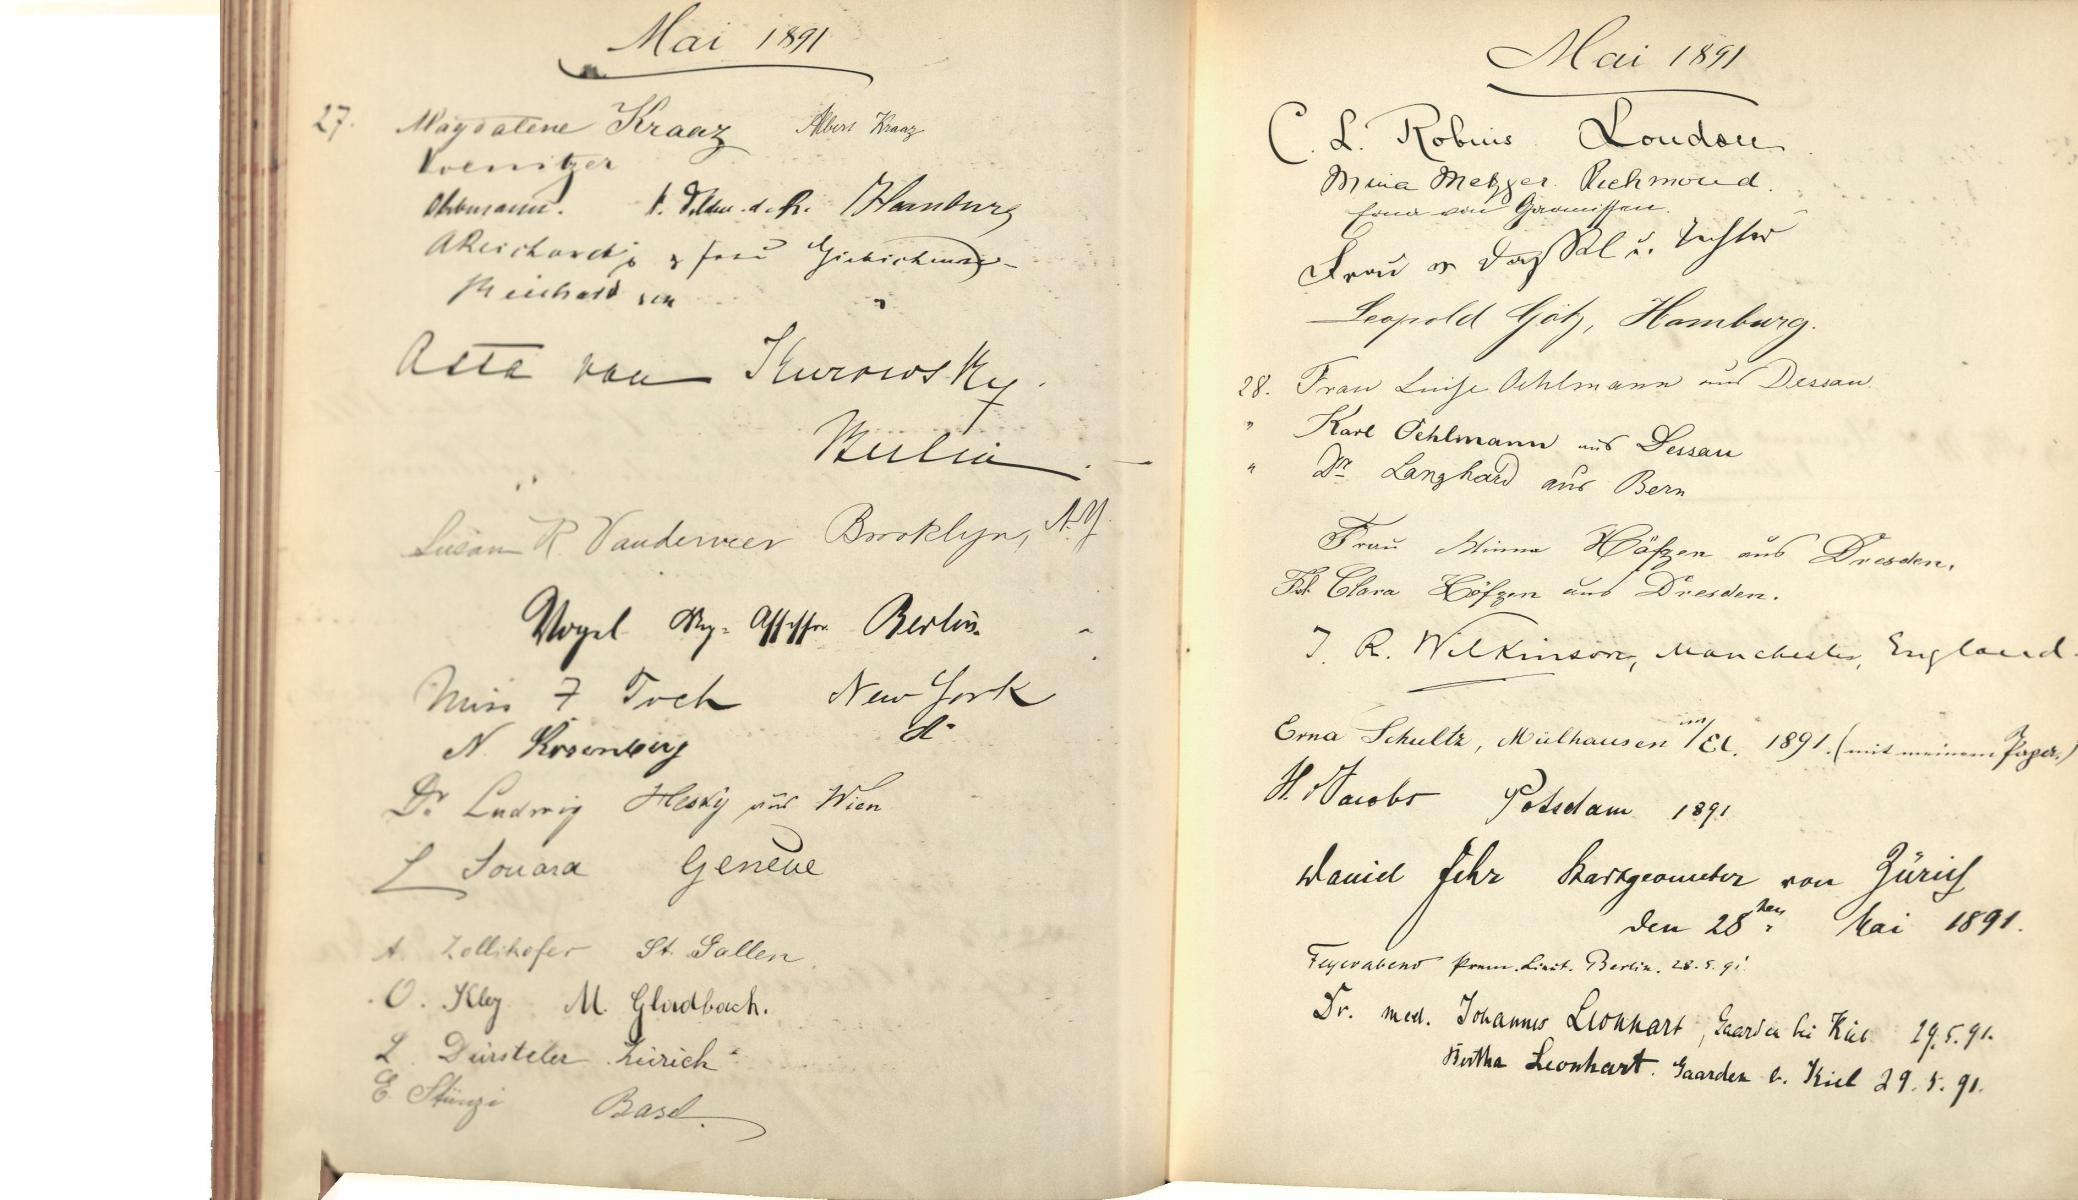 Mai 1891
27. Magdalene Kraaz Albert Kraaz
Voenitzer
Hamburg
AReichardt j & frau
Reichard sen "
Asta von Kurowsky.
Berlin
Susan R. Vanderveer Brooklyn, N.Y.
Vogel Reg. Assessor Berlin
Miss F Toch New York
N. Rosenberg do
Dr. Ludwig Hesky aus Wien
L Souara Genève
A. Zollikofer St. Gallen.
O. Kley M. Gladbach.
L. Dürsteler Zürich
E. Stünzi Basel.
Mai 1891
C. L. Robins London
Mina Metzger. Richmond.
Erna von
Frau v Dassel u. Tochter
Leopold Götz, Hamburg.
28. Frau Luise Oehlmann aus Dessau.
" Karl Oehlmann aus Dessau
" Dr. Langhard aus Bern
Frau Minna Höfgen aus Dresden.
Frl. Clara Höfgen aus Dresden.
T. R. Wilkinson, Manchester, England.
Erna Schultz, Mülhausen im/El. 1891. (mit meinem Papa.)
H. Jacobs Potsdam 1891
Daniel Fehr Stadtgeometer von Zürich
den 28ten Mai 1891.
Feyerabend Prem. Lieut. Berlin. 28.5.91.
Dr. med. Johannes Leonhart, Gaarden bei Kiel 29.5.91.
Bertha Leonhart. Gaarden b. Kiel 29.5.91.